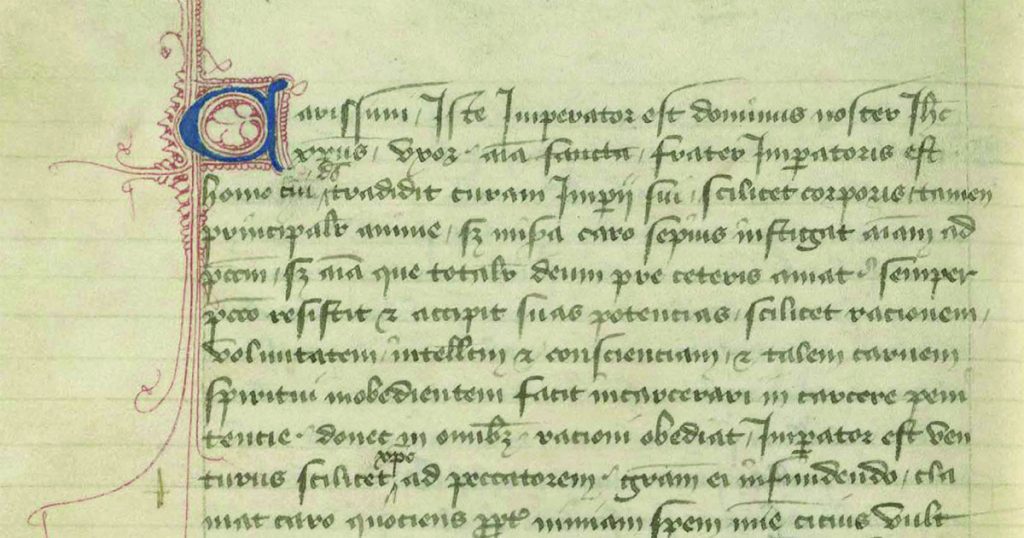 Carissimi Iste Imperator est dominus noster Jhc
xpus. vxor. aīa sancta, frater Impatoris est
homo cui ds tradidit curam Impii sui, scilicet corporis tamen
principalr anime, sz misa caro sepius instigat aīam ad
pccm, sz aīa que totalr deum pre ceteris amat semper
pcco resistit ⁊ accipit suas potencias, scilicet racionem,
voluntatem, intellcm ⁊ conscienciam, ⁊ talem carnem
spiritui inobedientem facit incarcerari in carcere peni
tencie. donec in omnibz. racioni obediat, Impator est ven
turus scilicet xpc ad peccatorem. gram ei infundendo, cla
mat caro quociens ppt nimiam spem mie cicius vult